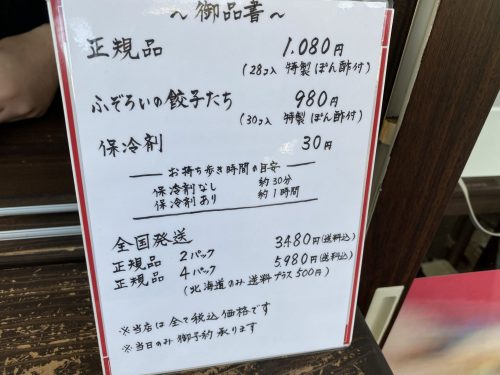 ～御品書～
正規品 1.080円
(28コ入 特製 ぽん酢付)
ふぞろいの餃子たち 980円
(30コ入 特製 ぽん酢付)
保冷剤 30円
お持ち歩き時間の目安
保冷剤なし 約30分
保冷剤あり 約1時間
全国発送
正規品 2パック 3480円(送料込)
正規品 4パック 5980円(送料込)
(北海道のみ 送料プラス500円)
※当店は全て税込価格です
※当日のみ御予約承ります